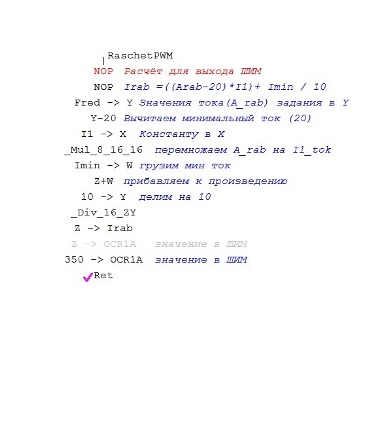 RaschetPWM
NOP Расчёт для выхода ШИМ
NOP Irab =((Arab-20)*I1)+ Imin / 10
Fred -> Y Значения тока(A_rab) задания в Y
Y-20 Вычитаем минимальный ток (20)
I1 -> X Константу в X
_Mul_8_16_16 перемножаем A_rab на I1_tok
Imin -> W грузим мин ток
Z+W прибавляем к произведению
10 -> Y делим на 10
_Div_16_ZY
Z -> Irab
Z -> OCR1A значение в ШИМ
350 -> OCR1A значение в ШИМ
Ret